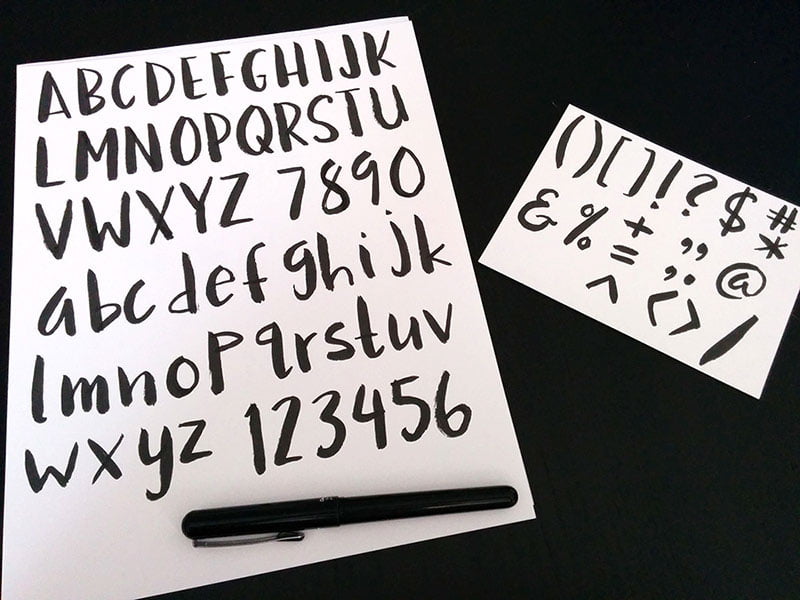 ABCDEFGHIJK
LMNOPQRSTU
VWXYZ 7890
abcdefghijk
lmnopqrstuv
wxyz 123456
()[]!?$#
&%+"*
=,.@
^<>/